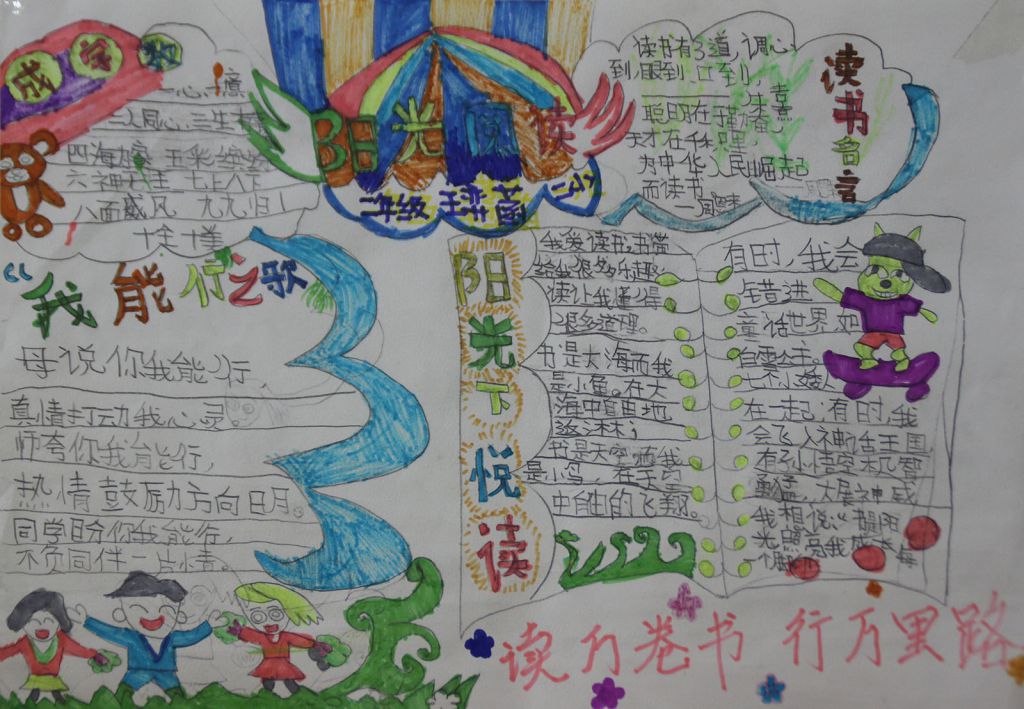 成字积
一心一意
二人同心 三生有幸
四海为家 五彩缤纷
六神无主 七上八下
八面威风 九九归一
阳光阅读
读书有三道,
到,眼到,口到
天才在
为中华人民崛起
而读书
读书名言
“我能行之歌
母说你我能行,
真情打动我心灵。
师夸你我能行,
热情鼓励方向明。
同学目分你我能行,
不负同伴一片情。
阳光下悦读
我爱读书,书带
给我很多乐趣,
读让我懂得
很多道理。
书是大海而我
是小鱼。在大
海中自由地
书是天空而我
是小鸟,在天空
中自由的飞翔。
有时,我会
错进
童话世界,如
白雪公主。
七个小矮人
在一起,有时,我
会飞入神话王国
有孙悟空,机智
勇猛,大展神威
我想说,书是阳
光照亮我
读万卷书 行万里路